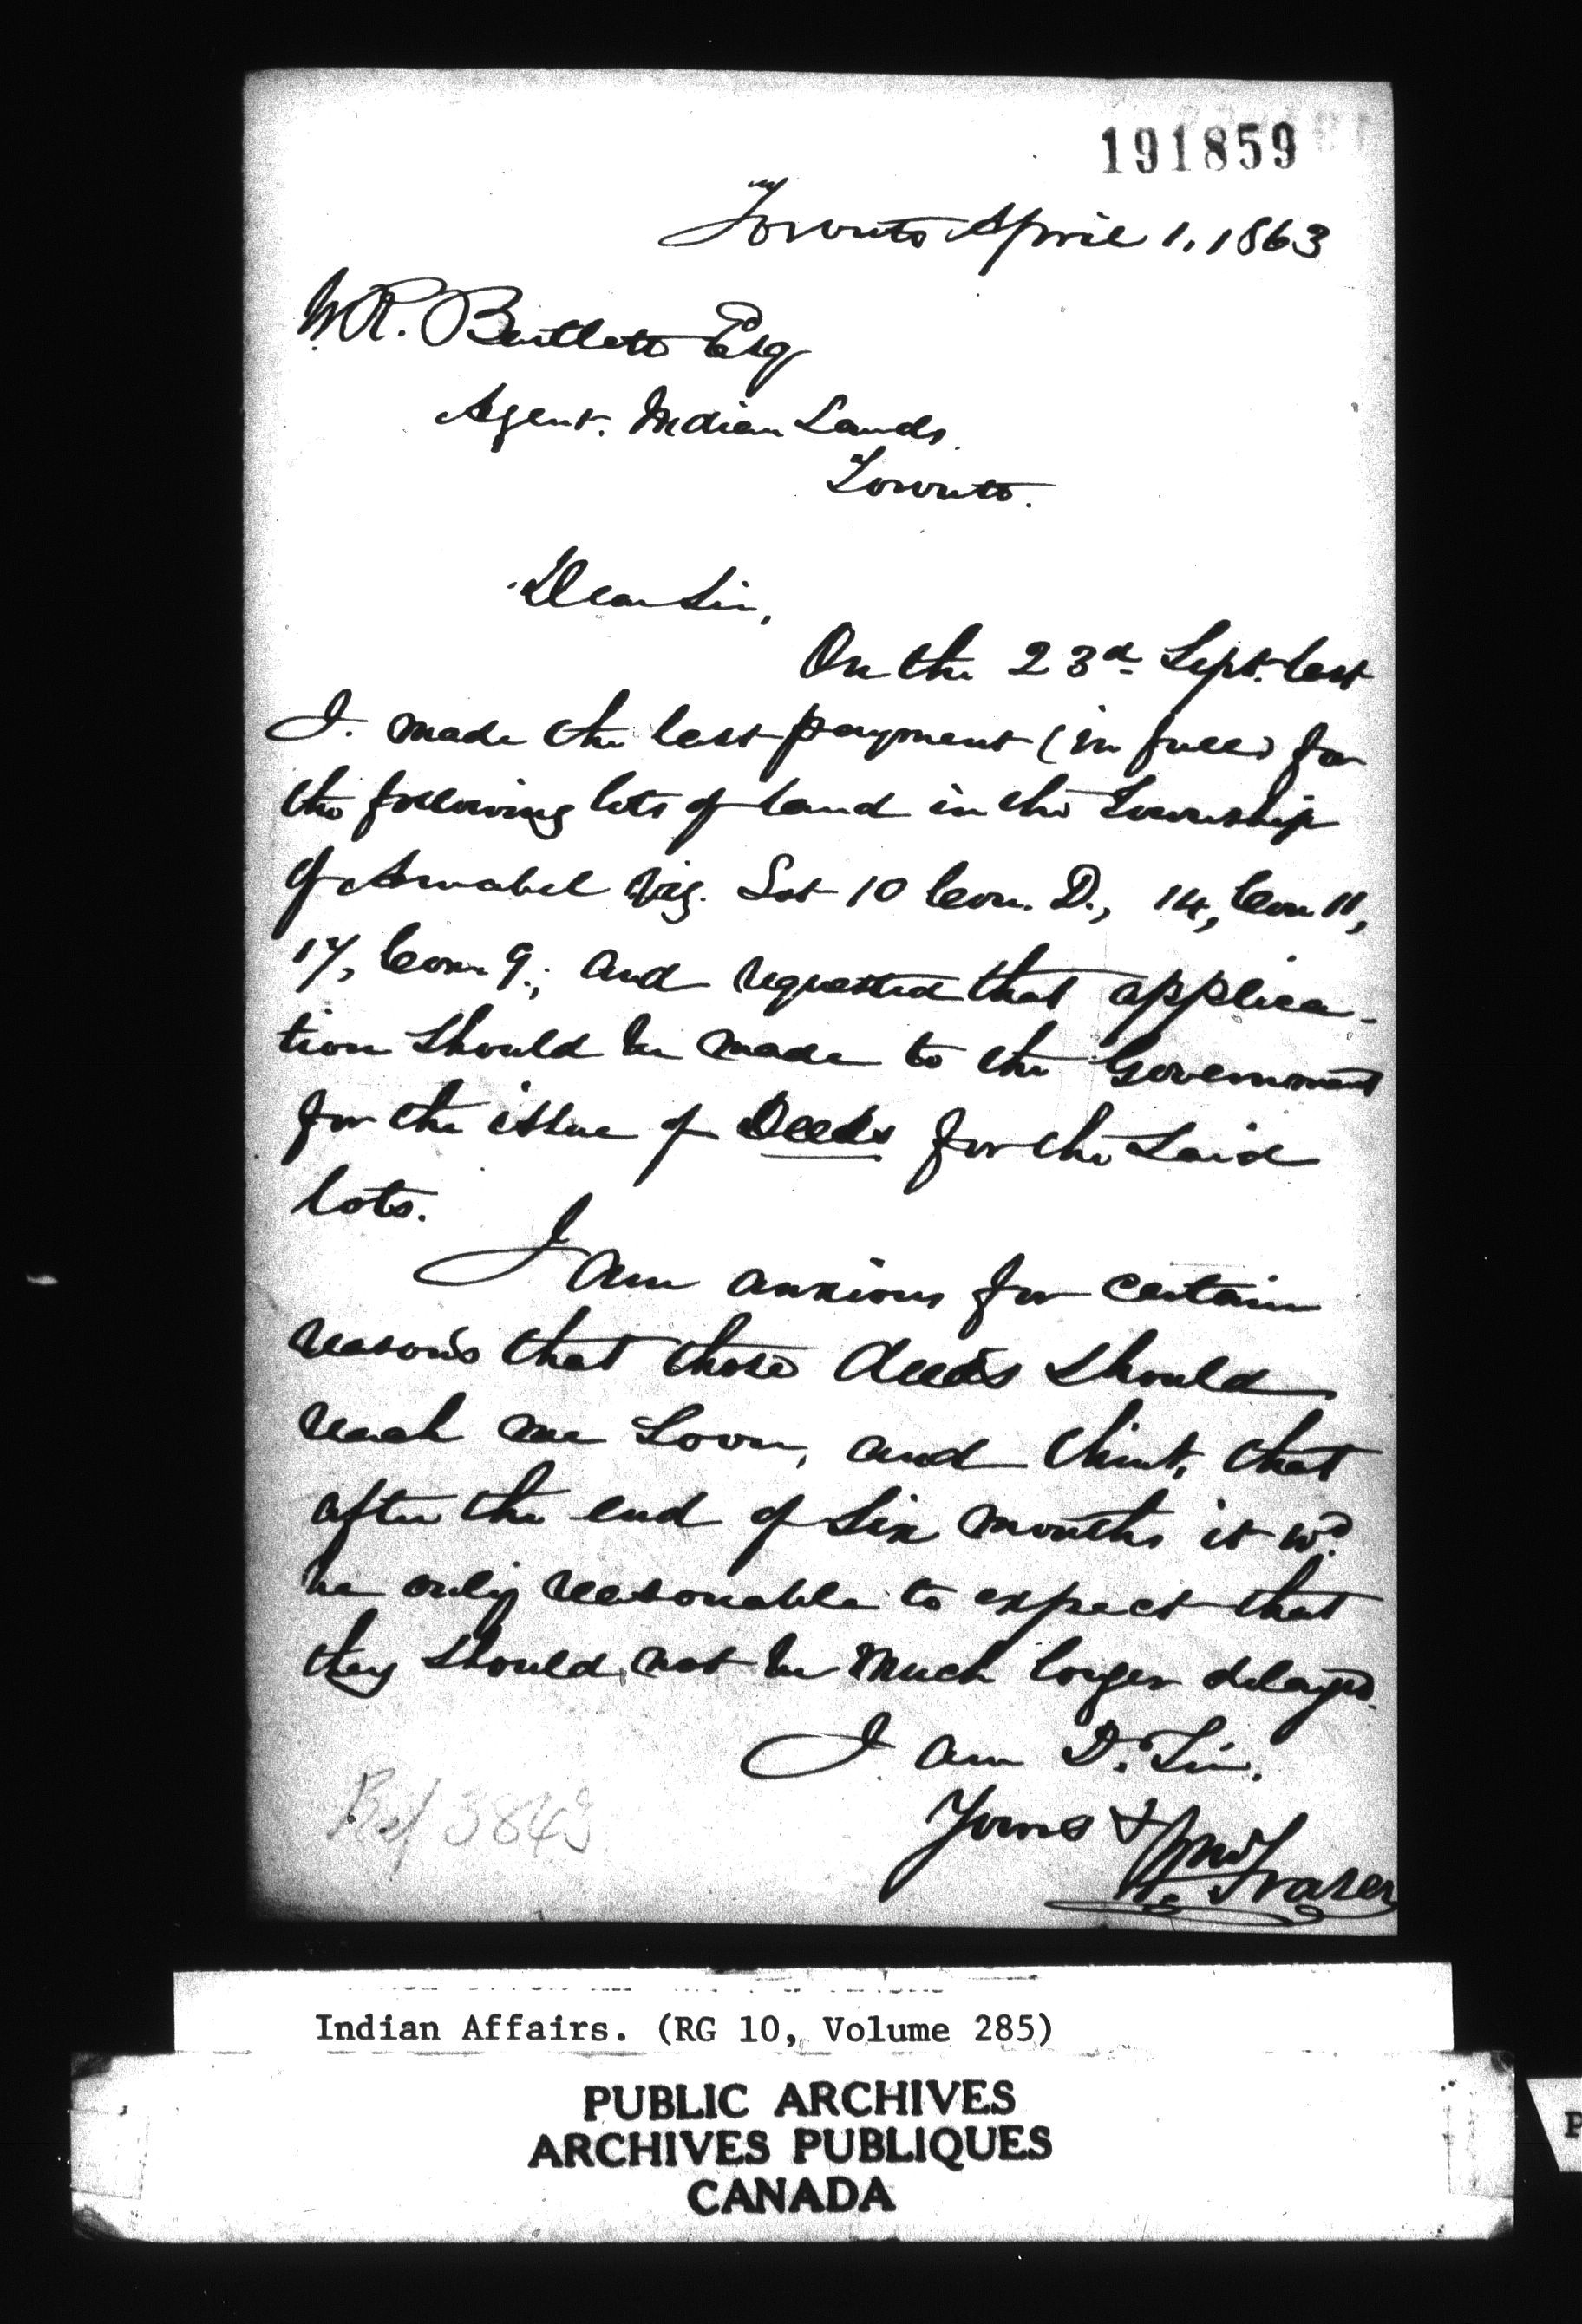 191859
Toronto April 1, 1863
W.R. Bartlett Esq
Agent. Indian Lands.
Toronto.
Dear Sir,
On the 23d Sept. last
I made the last payment (in full) for
the following lots of land in the Township
of Amabel viz. Lot 10 Con. D., 14, Con 11,
17, Con 9.; and requested that applica-
tion should be made to the Government
for the issue of Deeds for the said
lots.
I am anxious for certain
reasons that those deeds should
reach me soon, and think, that
after the end of six months it wd.
be only reasonable to expect that
they should not be much longer delayed.
I am D. Sir,
Yours &
Fraser
Ref 3843
Indian Affairs. (RG 10, Volume 285)
PUBLIC ARCHIVES
ARCHIVES PUBLIQUES
CANADA
P